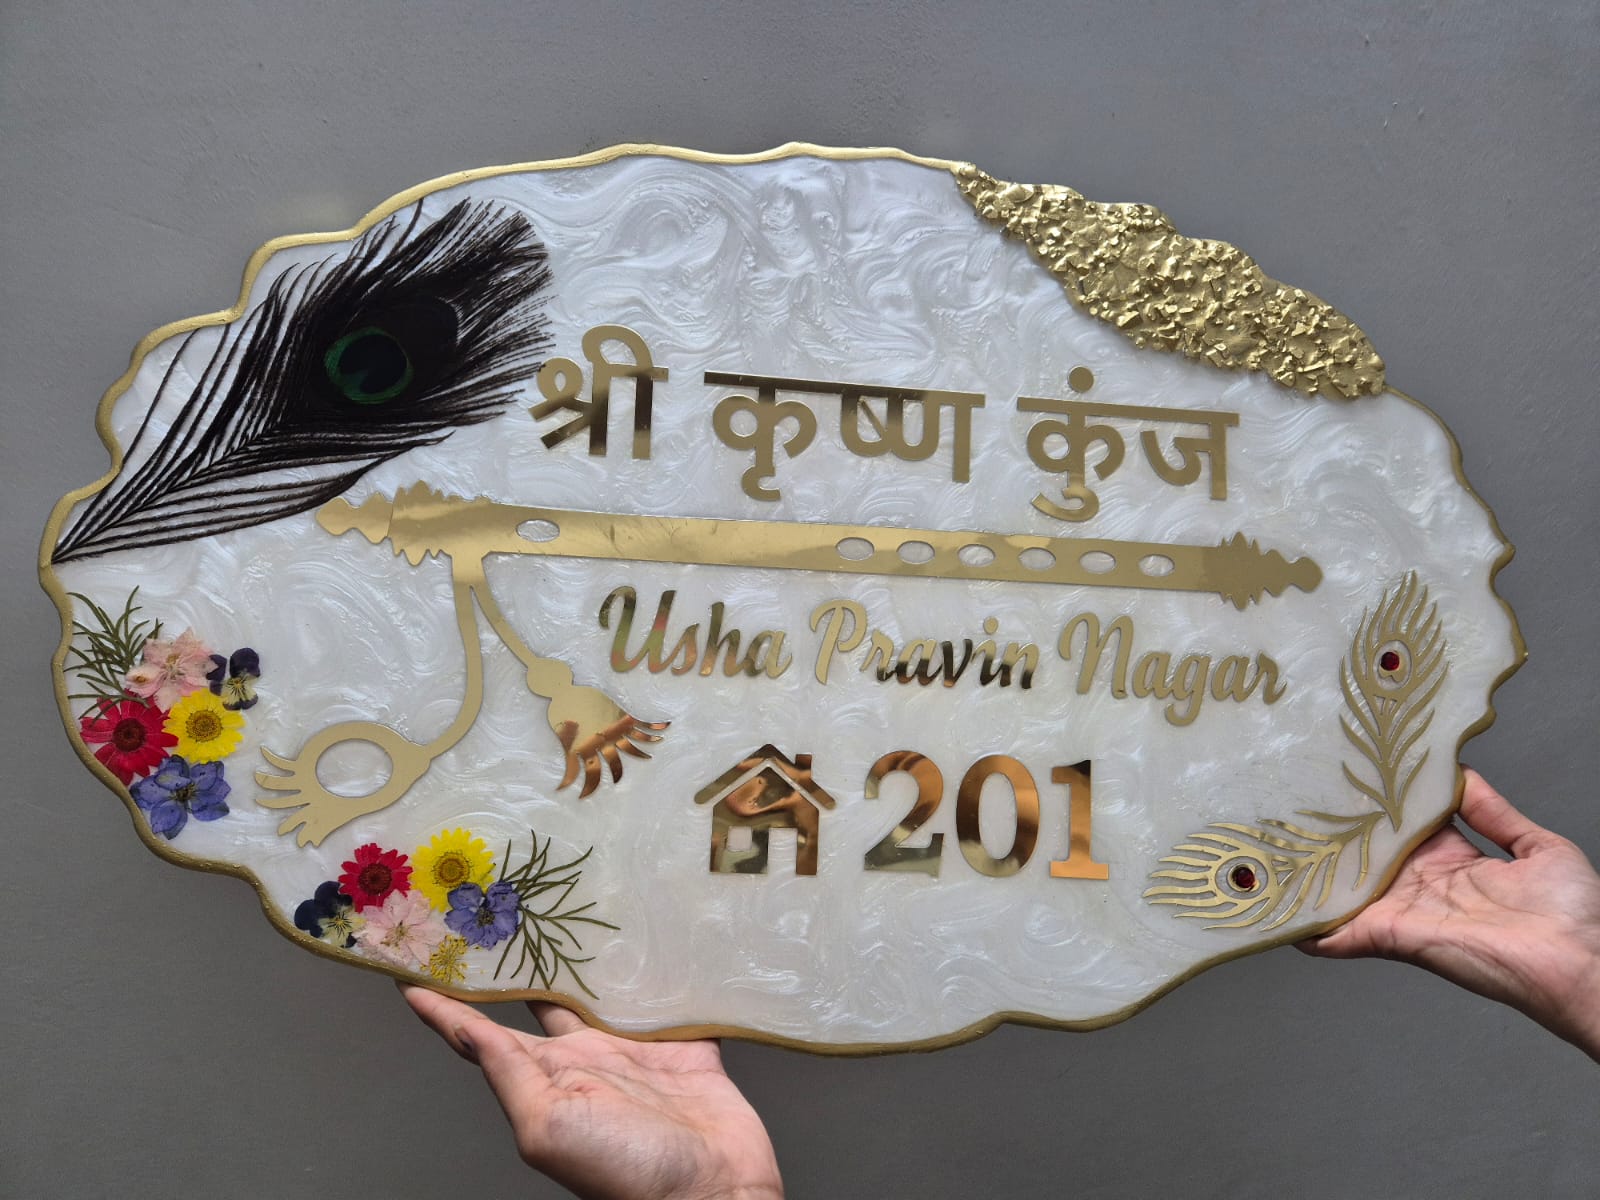 श्री कृष्ण कुंज
Usha Pravin Nagar
201